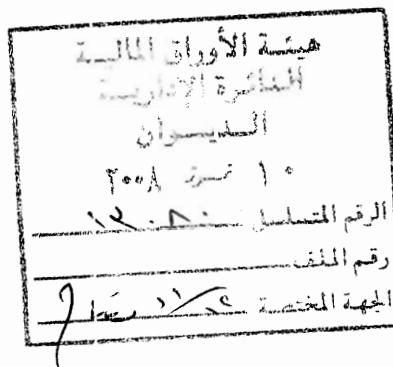 هيئة الأوراق المالية
الدائرة الإدارية
الديوان
١٠ تموز ٢٠٠٨
الرقم المتسلسل
رقم الملف
الجهة المختصة